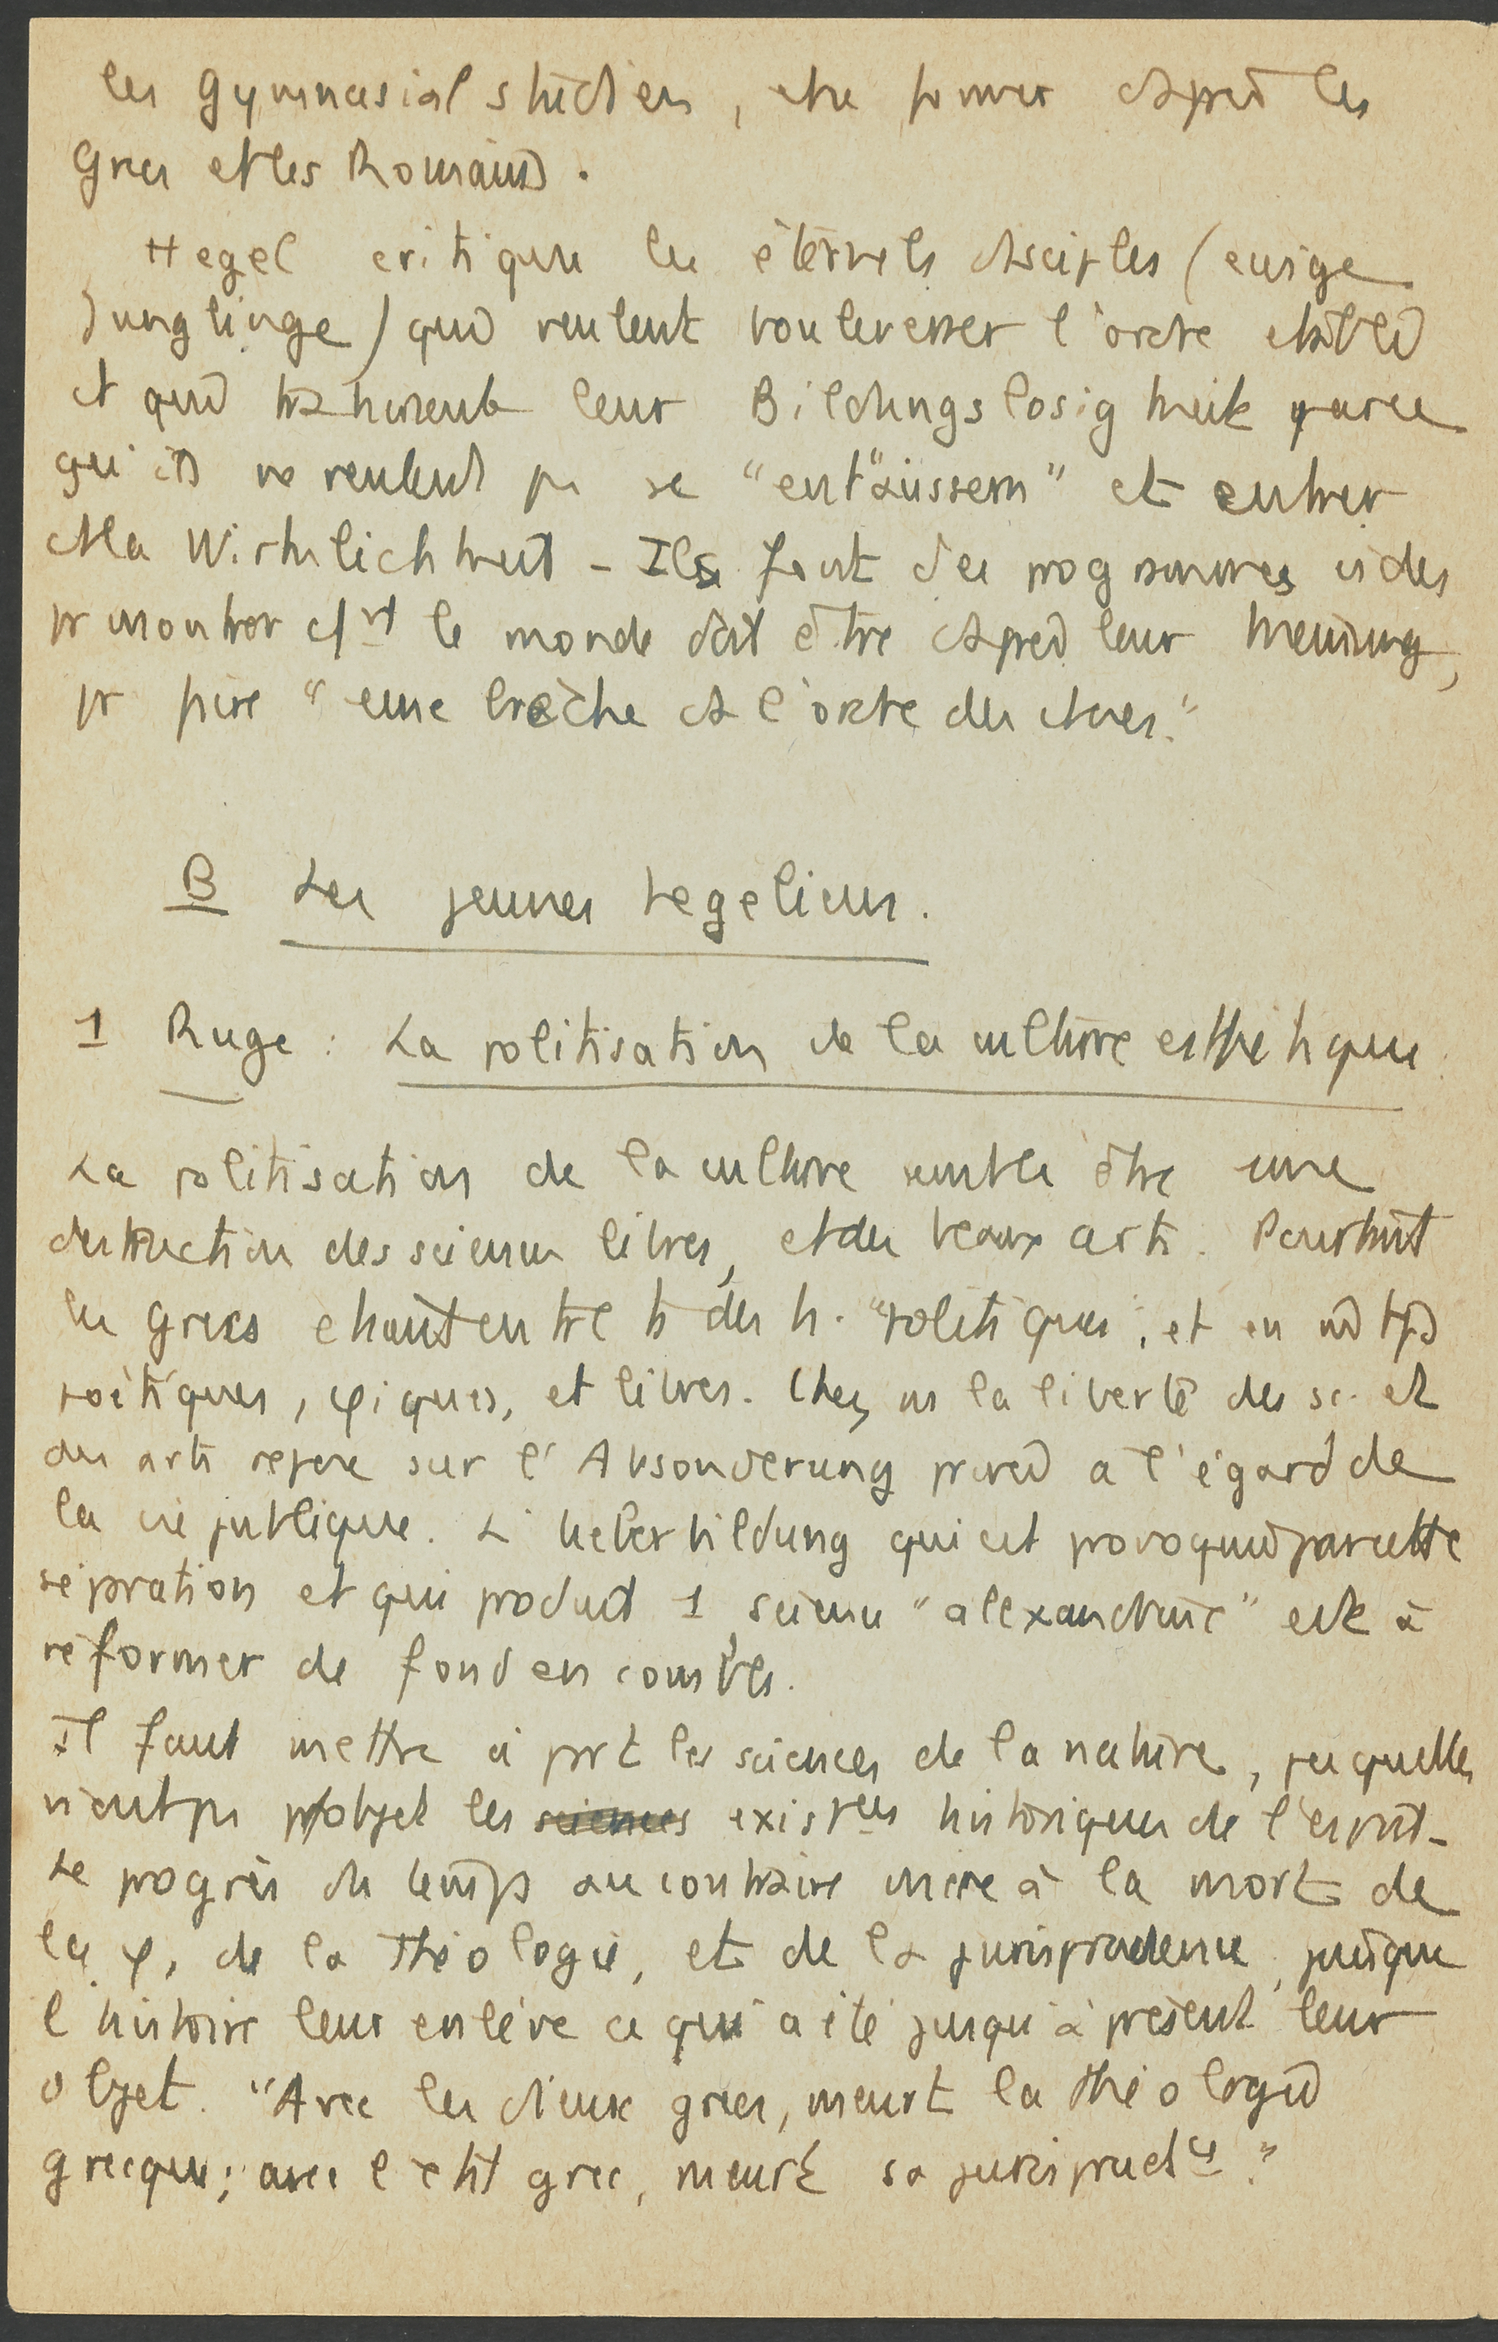 les Gymnasialstudien, être former d'après les
Grecs et les Romains.
Hegel critique les éternels disciples (ewige
Junglinge) qui veulent bouleverser l'ordre établi
et qui trahissent leur Bildungslosigkeit parce
qu'ils ne veulent pas se "entäussern" et entrer
ds la Wirklichkeit - Ils font des programmes vides
pr montrer cmt le monde doit être d'après leur Meinung,
pr faire "une brèche ds l'ordre des choses."
B Les jeunes hegeliens.
1 Ruge : La politisation de la culture esthétique.
La politisation de la culture semble être une
destruction des sciences libres, et des beaux arts. Pourtant
les Grecs étaient en tt des h. "politiques", et en m tps
poétiques, φiques, et libres. Chez ns la liberté des sc. et
des arts repose sur l'Absonderung privée à l'égard de
la vie publique. L'Ueberbildung qui est provoquée par cette
séparation et qui produit 1 science "alexandrine" est à
réformer de fond en combles.
Il faut mettre à part les sciences de la nature, parce qu'elles
n'ont ps pr objet les sciences existces historiques de l'esprit -
Le progrès du temps au contraire mène à la mort de
la φ, de la théologie, et de la jurisprudence, puisque
l'histoire leur enlève ce qui a été jusqu'à présent leur
objet. "Avec les dieux grecs, meurt la théologie
grecque ; avec l'état grec, meurt sa jurisprudce."